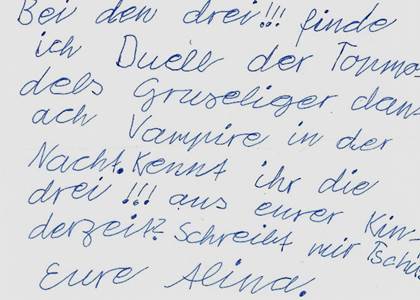 Bei den drei!!! finde
ich Duell der Topmo
dels Gruseliger dan
ach Vampire in der
Nacht. Kennt ihr die
drei !!! aus eurer Kin-
derzeit? Schreibt mir Tschüs
Eure Alina.